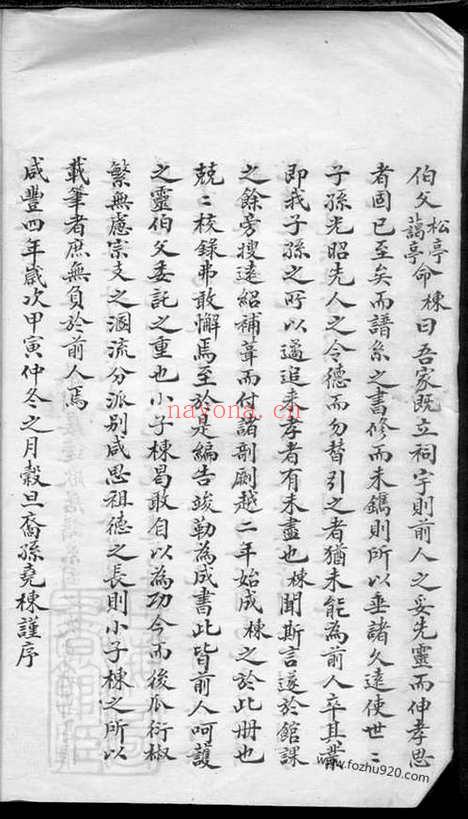 伯父松亭藹亭命棟曰吾家既立祠宇則前人之妥先靈而伸孝思
者固已至矣而譜系之書修而未鐫則所以垂諸久遠使世二
子孫光昭先人之令德而勿替引之者猶未能為前人卒其業
即我子孫之所以遹追来孝者有未盡也棟聞斯言遂於館課
之餘旁搜遠紹補葺而付諸剞劂越二年始成棟之於此册也
兢二核録弗敢懈焉至於是編告竣勒為成書此皆前人呵護
之靈伯父委託之重也小子棟曷敢自以為功今而後瓜衍椒
繁無慮宗支之溷流分派别咸思祖德之長則小子棟之所以
載筆者庶無負於前人焉
咸豐四年歲次甲寅仲冬之月穀旦裔孫堯棟謹序
nayona.cn
www.fozhu920.com